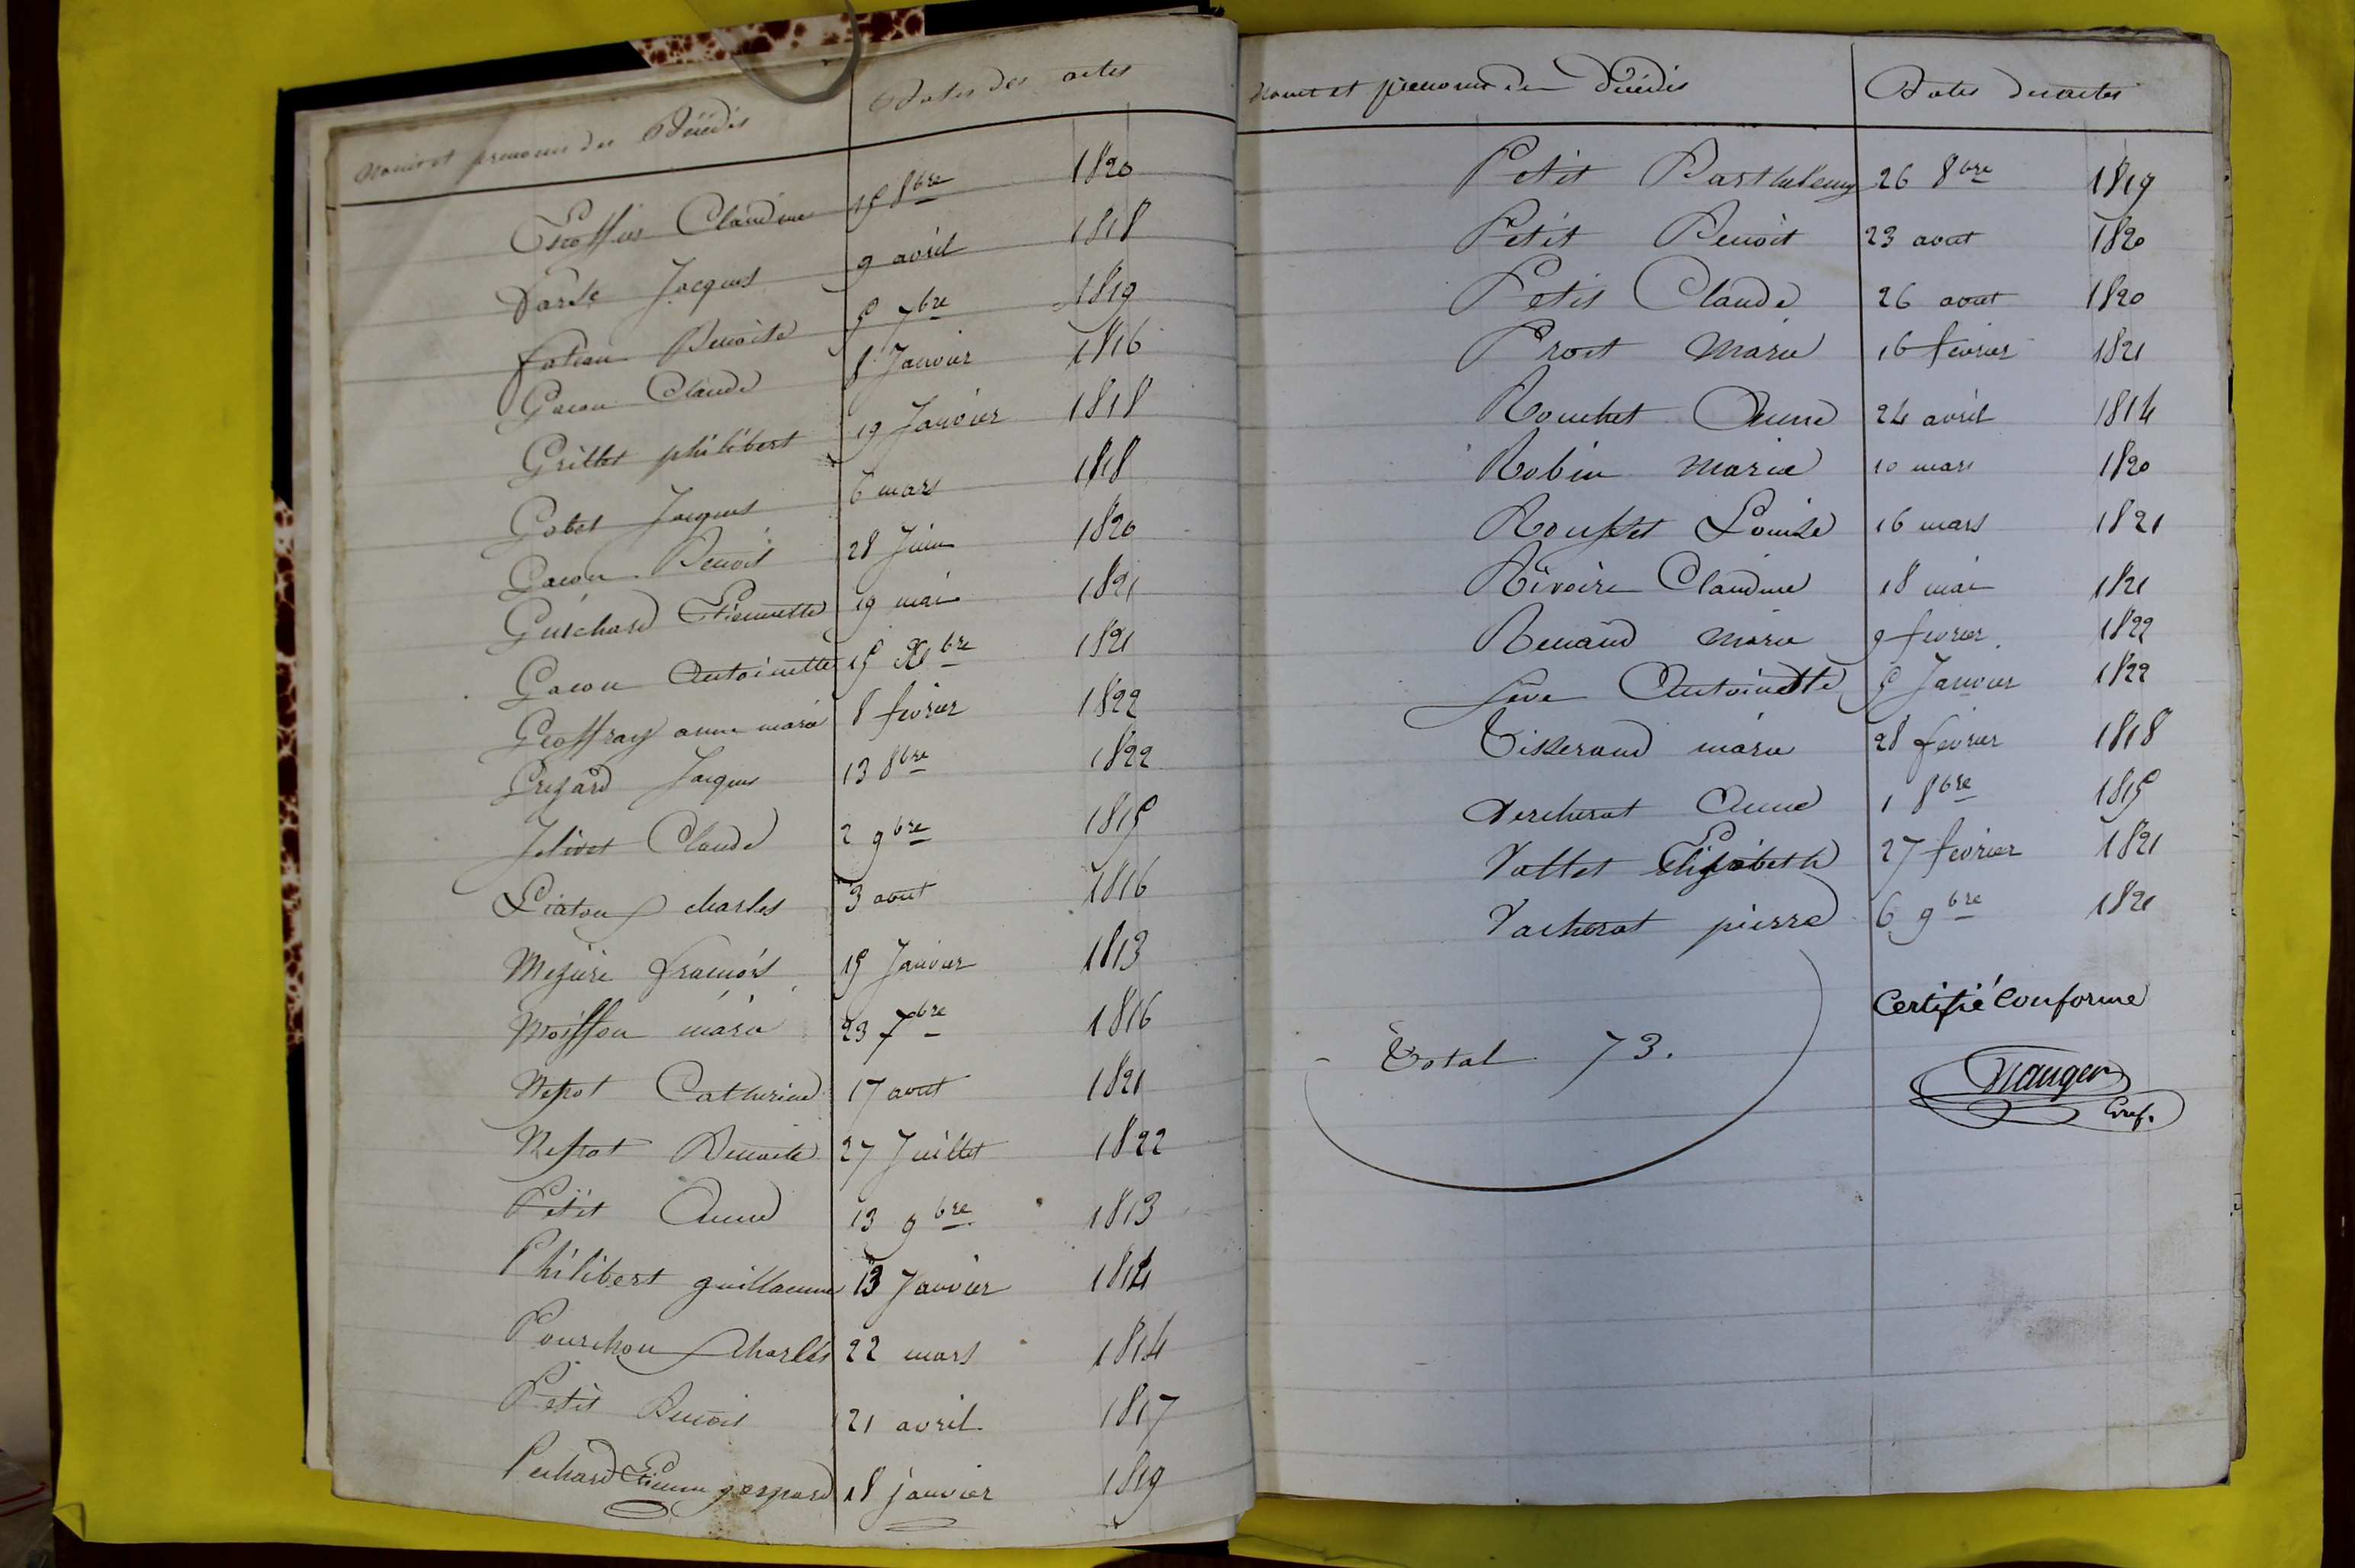 Noms et prenoms des Décédés Dates des actes
Escoffier Claudine 15 8bre 1820
Jacques 9 avril 1818
Benoite 5 7bre 1819
Gacon Claude 8 Janvier 1816
Grillet philibert 19 Janvier 1818
Gobet Jacques 6 mars 1818
Gacon Benoit 28 Juin 1820
Guichard Pierrette 19 mai 1821
Gacon Antoinette 15 Xbre 1821
Geoffray anne marie 8 fevrier 1822
Jacques 13 8bre 1822
Jolivet Claude 2 9bre 1815
charles 3 aout 1816
Meziere francois 15 Janvier 1813
Moisson marie 23 7bre 1816
Catherine 17 aout 1821
Benoite 27 Juillet 1822
Petit Anne 13 9bre 1813
Philibert guillaume 13 Janvier 1814
Pourchoux Charles 22 mars 1814
Petit Benoit 21 avril 1817
Pechard Etienne gaspard 18 janvier 1819
Noms et prenoms des Décédés Dates des actes
Petit Barthelemy 26 8bre 1819
Petit Benoit 23 aout 1820
Petit Claude 26 aout 1820
Prost Marie 16 fevrier 1821
Rouchet Anne 24 avril 1814
Robin Marie 10 mars 1820
Rousset Louise 16 mars 1821
Rivoire Claudine 18 mai 1821
Renaud Marie 9 fevrier 1822
Seve Antoinette 5 Janvier 1822
Tisserand marie 28 fevrier 1818
Vercherat Anne 1 8bre 1815
Vallet Elizabeth 27 fevrier 1821
Vacherat pierre 6 9bre 1821
Certifié Conforme
Total 73.